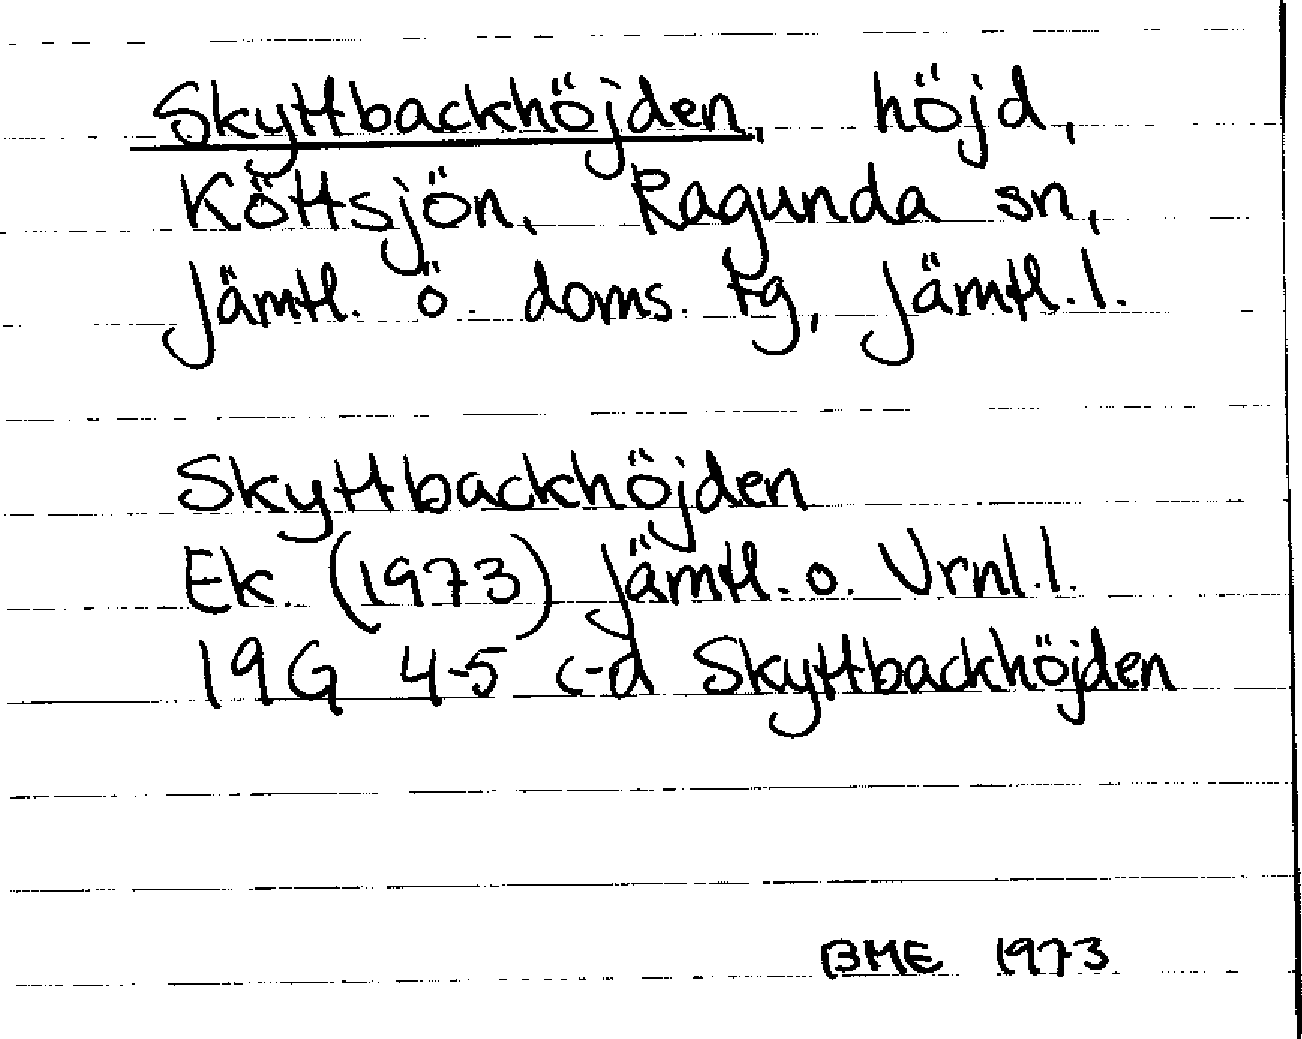 Skyttbackhöjden, höjd,
Köttsjön, Ragunda sn,
Jämtl. ö. doms. tg, Jämtl. l.
Skyttbackhöjden
Ek. (1973) Jämtl. o. Vrnl. l.
19G 4-5 c-d Skyttbackhöjden
BME 1973